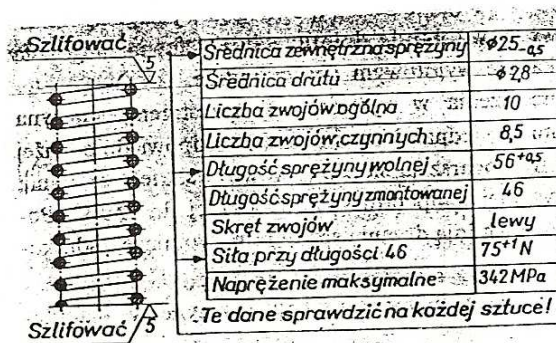 Szlifować
5
Średnica zewnętrzna sprężyny *ϕ25-0,5
Średnica drutu ϕ2,8
Liczba zwojów ogólna 10
Liczba zwojów czynnych 8,5
Długość sprężyny wolnej 56+0,5
Długość sprężyny zmontowanej 46
Skręt zwojów lewy
Siła przy długości 46 75+1 N
Naprężenie maksymalne 342 MPa
Te dane sprawdzić na każdej sztuce!
Szlifować
5